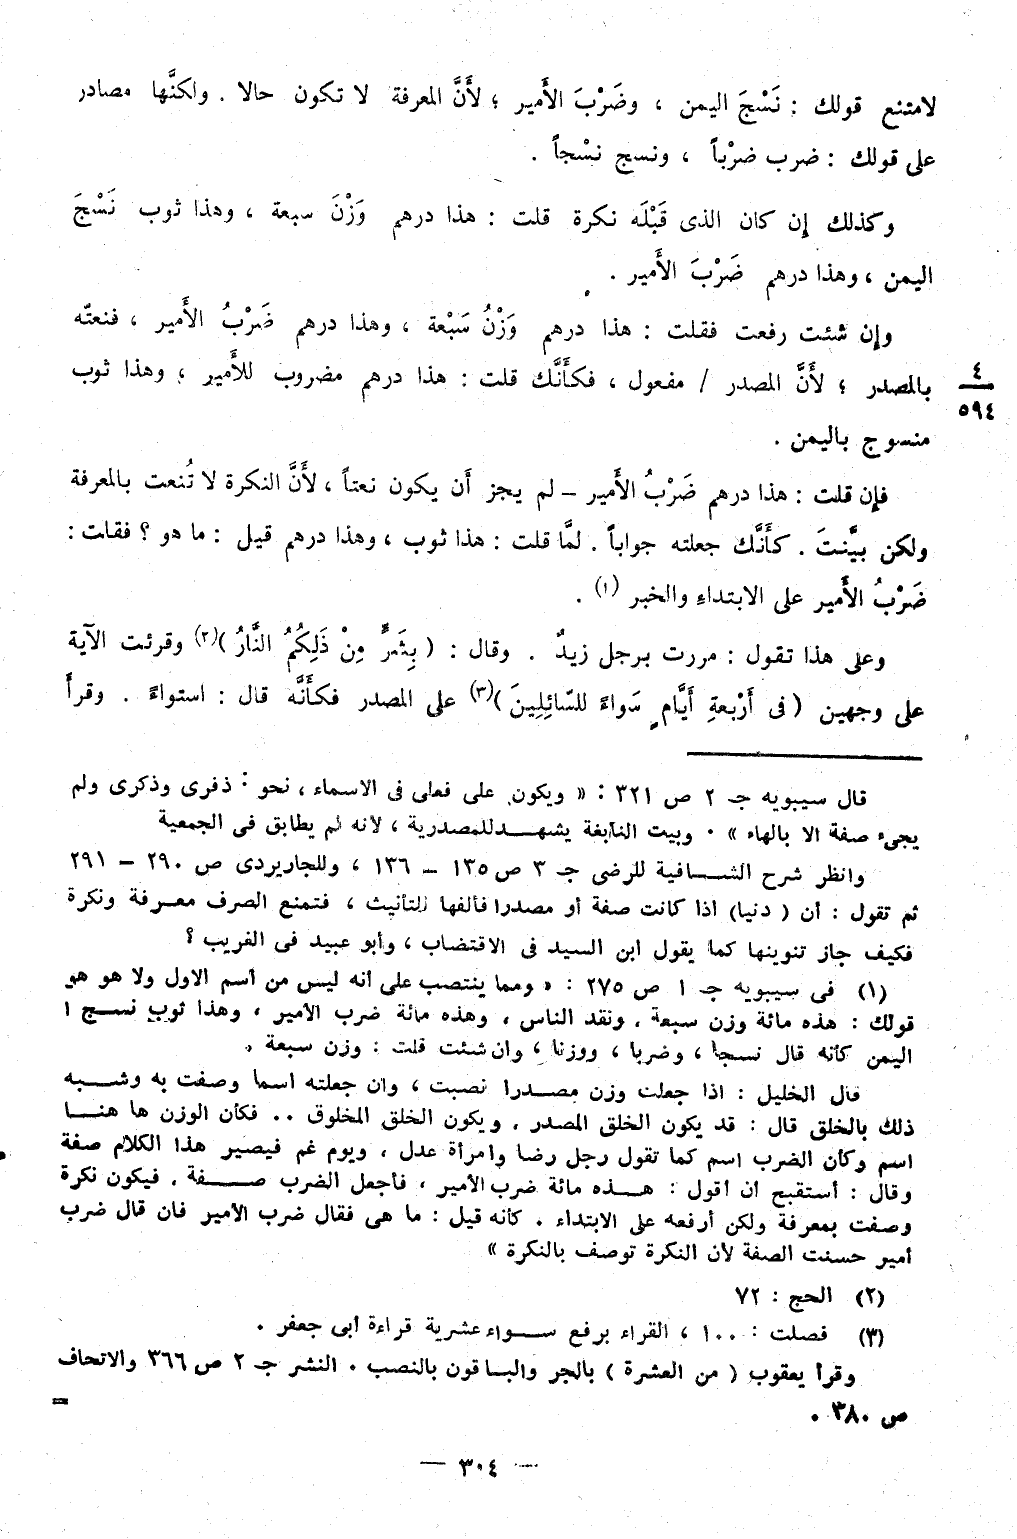 لامتنع قولك : نَسْجَ اليمن ، وضَرْبَ الأَمير ؛ لأَنَّ المعرفة لا تكون حالا . ولكنَّها مصادر
على قولك : ضرب ضرْباً ، ونسج نسْجاً .
وكذلك إن كان الذى قَبْلَه نكرة قلت : هذا درهم وَزْنَ سبعة ، وهذا ثوب نَسْجَ
اليمن ، وهذا درهم ضَرْبَ الأَمير .
وإن شئت رفعت فقلت : هذا درهم وَزْنُ سَبْعة ، وهذا درهم ضَرْبُ الأَمير ، فنعتّه
بالمصدر ؛ لأَنَّ المصدر / مفعول ، فكأَنَّك قلت : هذا درهم مضروب للأَمير ، وهذا ثوب
٤
٥٩٤
منسوج باليمن .
فإن قلت : هذا درهم ضَرْبُ الأَمير – لم يجز أَن يكون نعتاً ، لأَنَّ النكرة لا تُنعت بالمعرفة
ولكن بيَّنتَ . كأَنَّك جعلته جواباً . لمَّا قلت : هذا ثوب ، وهذا درهم قيل : ما هو ؟ فقلت :
ضَرْبُ الأَمير على الابتداءِ والخبر (١) .
وعلى هذا تقول : مررت برجل زيدٌ . وقال : ( بِشَرٍّ مِنْ ذَلِكُمُ النَّارُ )(٢) وقرئت الآية
على وجهين ( فى أَرْبعةِ أَيَّامٍ سَواءً للسّائِلِينَ )(٣) على المصدر فكأَنَّه قال : استواءً . وقرأَ
قال سيبويه جـ ٢ ص ٣٢١ : « ويكون على فعلى فى الاسماء ، نحو : ذفرى وذكرى ولم
يجىء صفة الا بالهاء » . وبيت النابغة يشهد للمصدرية ، لأنه لم يطابق فى الجمعية
وانظر شرح الشافية للرضى جـ ٣ ص ١٣٥ – ١٣٦ ، وللجاربردى ص ٢٩٠ – ٢٩١
ثم تقول : أن ( دنيا) اذا كانت صفة أو مصدرا فألفها للتأنيث ، فتمنع الصرف معرفة ونكرة
فكيف جاز تنوينها كما يقول ابن السيد فى الاقتضاب ، وأبو عبيد فى الغريب ؟
(١) فى سيبويه جـ ١ ص ٢٧٥ : « ومما ينتصب على أنه ليس من أسم الاول ولا هو هو
قولك : هذه مائة وزن سبعة ، ونقد الناس ، وهذه مائة ضرب الأمير ، وهذا ثوب نسج ا
اليمن كأنه قال نسجا ، وضربا ، ووزنا ، وان شئت قلت : وزن سبعة .
قال الخليل : اذا جعلت وزن مصدرا نصبت ، وان جعلته اسما وصفت به وشبه
ذلك بالخلق قال : قد يكون الخلق المصدر ، ويكون الخلق المخلوق .. فكأن الوزن ها هنا
اسم وكأن الضرب اسم كما تقول رجل رضا وامرأة عدل ، ويوم غم فيصير هذا الكلام صفة
وقال : أستقبح أن أقول : هذه مائة ضرب الأمير ، فأجعل الضرب صفة ، فيكون نكرة
وصفت بمعرفة ولكن أرفعه على الابتداء . كأنه قيل : ما هى فقال ضرب الأمير فان قال ضرب
أمير حسنت الصفة لأن النكرة توصف بالنكرة »
(٢) الحج : ٧٢
(٣) فصلت : ١٠٠ ، القراء برفع سواء عشرية قراءة أبى جعفر .
وقرأ يعقوب ( من العشرة ) بالجر والباقون بالنصب . النشر جـ ٢ ص ٣٦٦ والاتحاف
ص ٣٨٠ .
=
— ٣٠٤ —